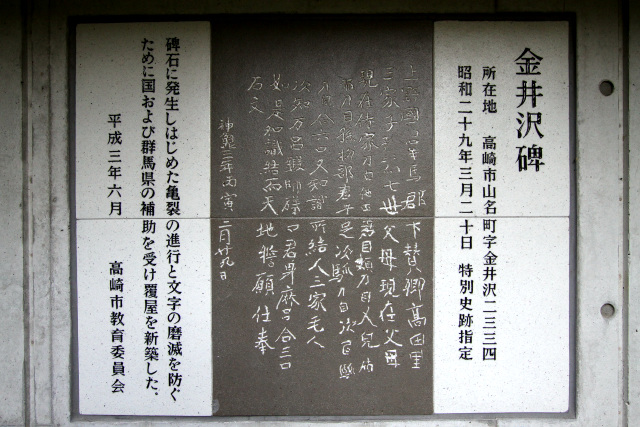 金井沢碑
所在地 高崎市山名町字金井沢二三三四
昭和二十九年三月二十日 特別史跡指定
上野國群馬郡下賛郷高田里
三家子□為七世父母現在父母
現在侍家刀自他田君目頬刀自又兒加
那刀自孫物部君午足次馴刀自次乙馴
刀自合六口又知識所結人三家毛人
次知万呂鍛師礒マ君身麻呂合三口
如是知識結而天地誓願仕奉
石文
神亀三年丙寅二月廿九日
碑石に発生しはじめた亀裂の進行と文字の磨滅を防ぐ
ために国および群馬県の補助を受け覆屋を新築した。
平成三年六月 高崎市教育委員会